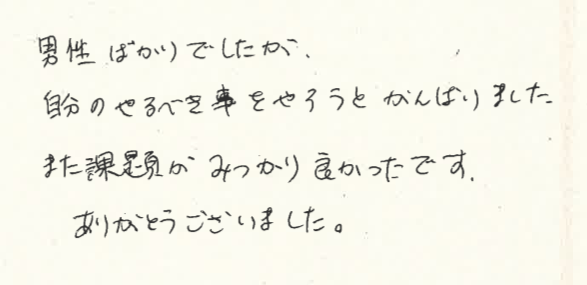 男性ばかりでしたが、
自分のやるべき事をやろうとがんばりました
また課題がみつかり良かったです。
ありがとうございました。